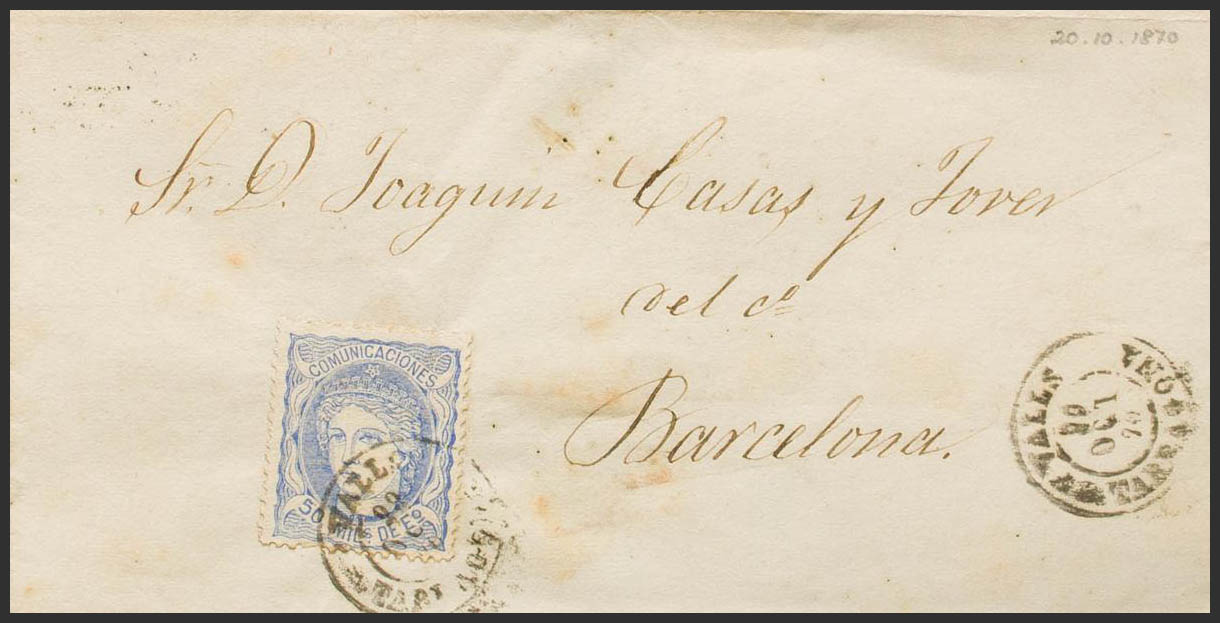 20.10.1870
Sr. D. Joaquin Casas y Jover
del cº
Barcelona.
COMUNICACIONES
50 MILS DE Eº
VALLS
OCT
VALLS
20
OCT
69
TARRAGONA